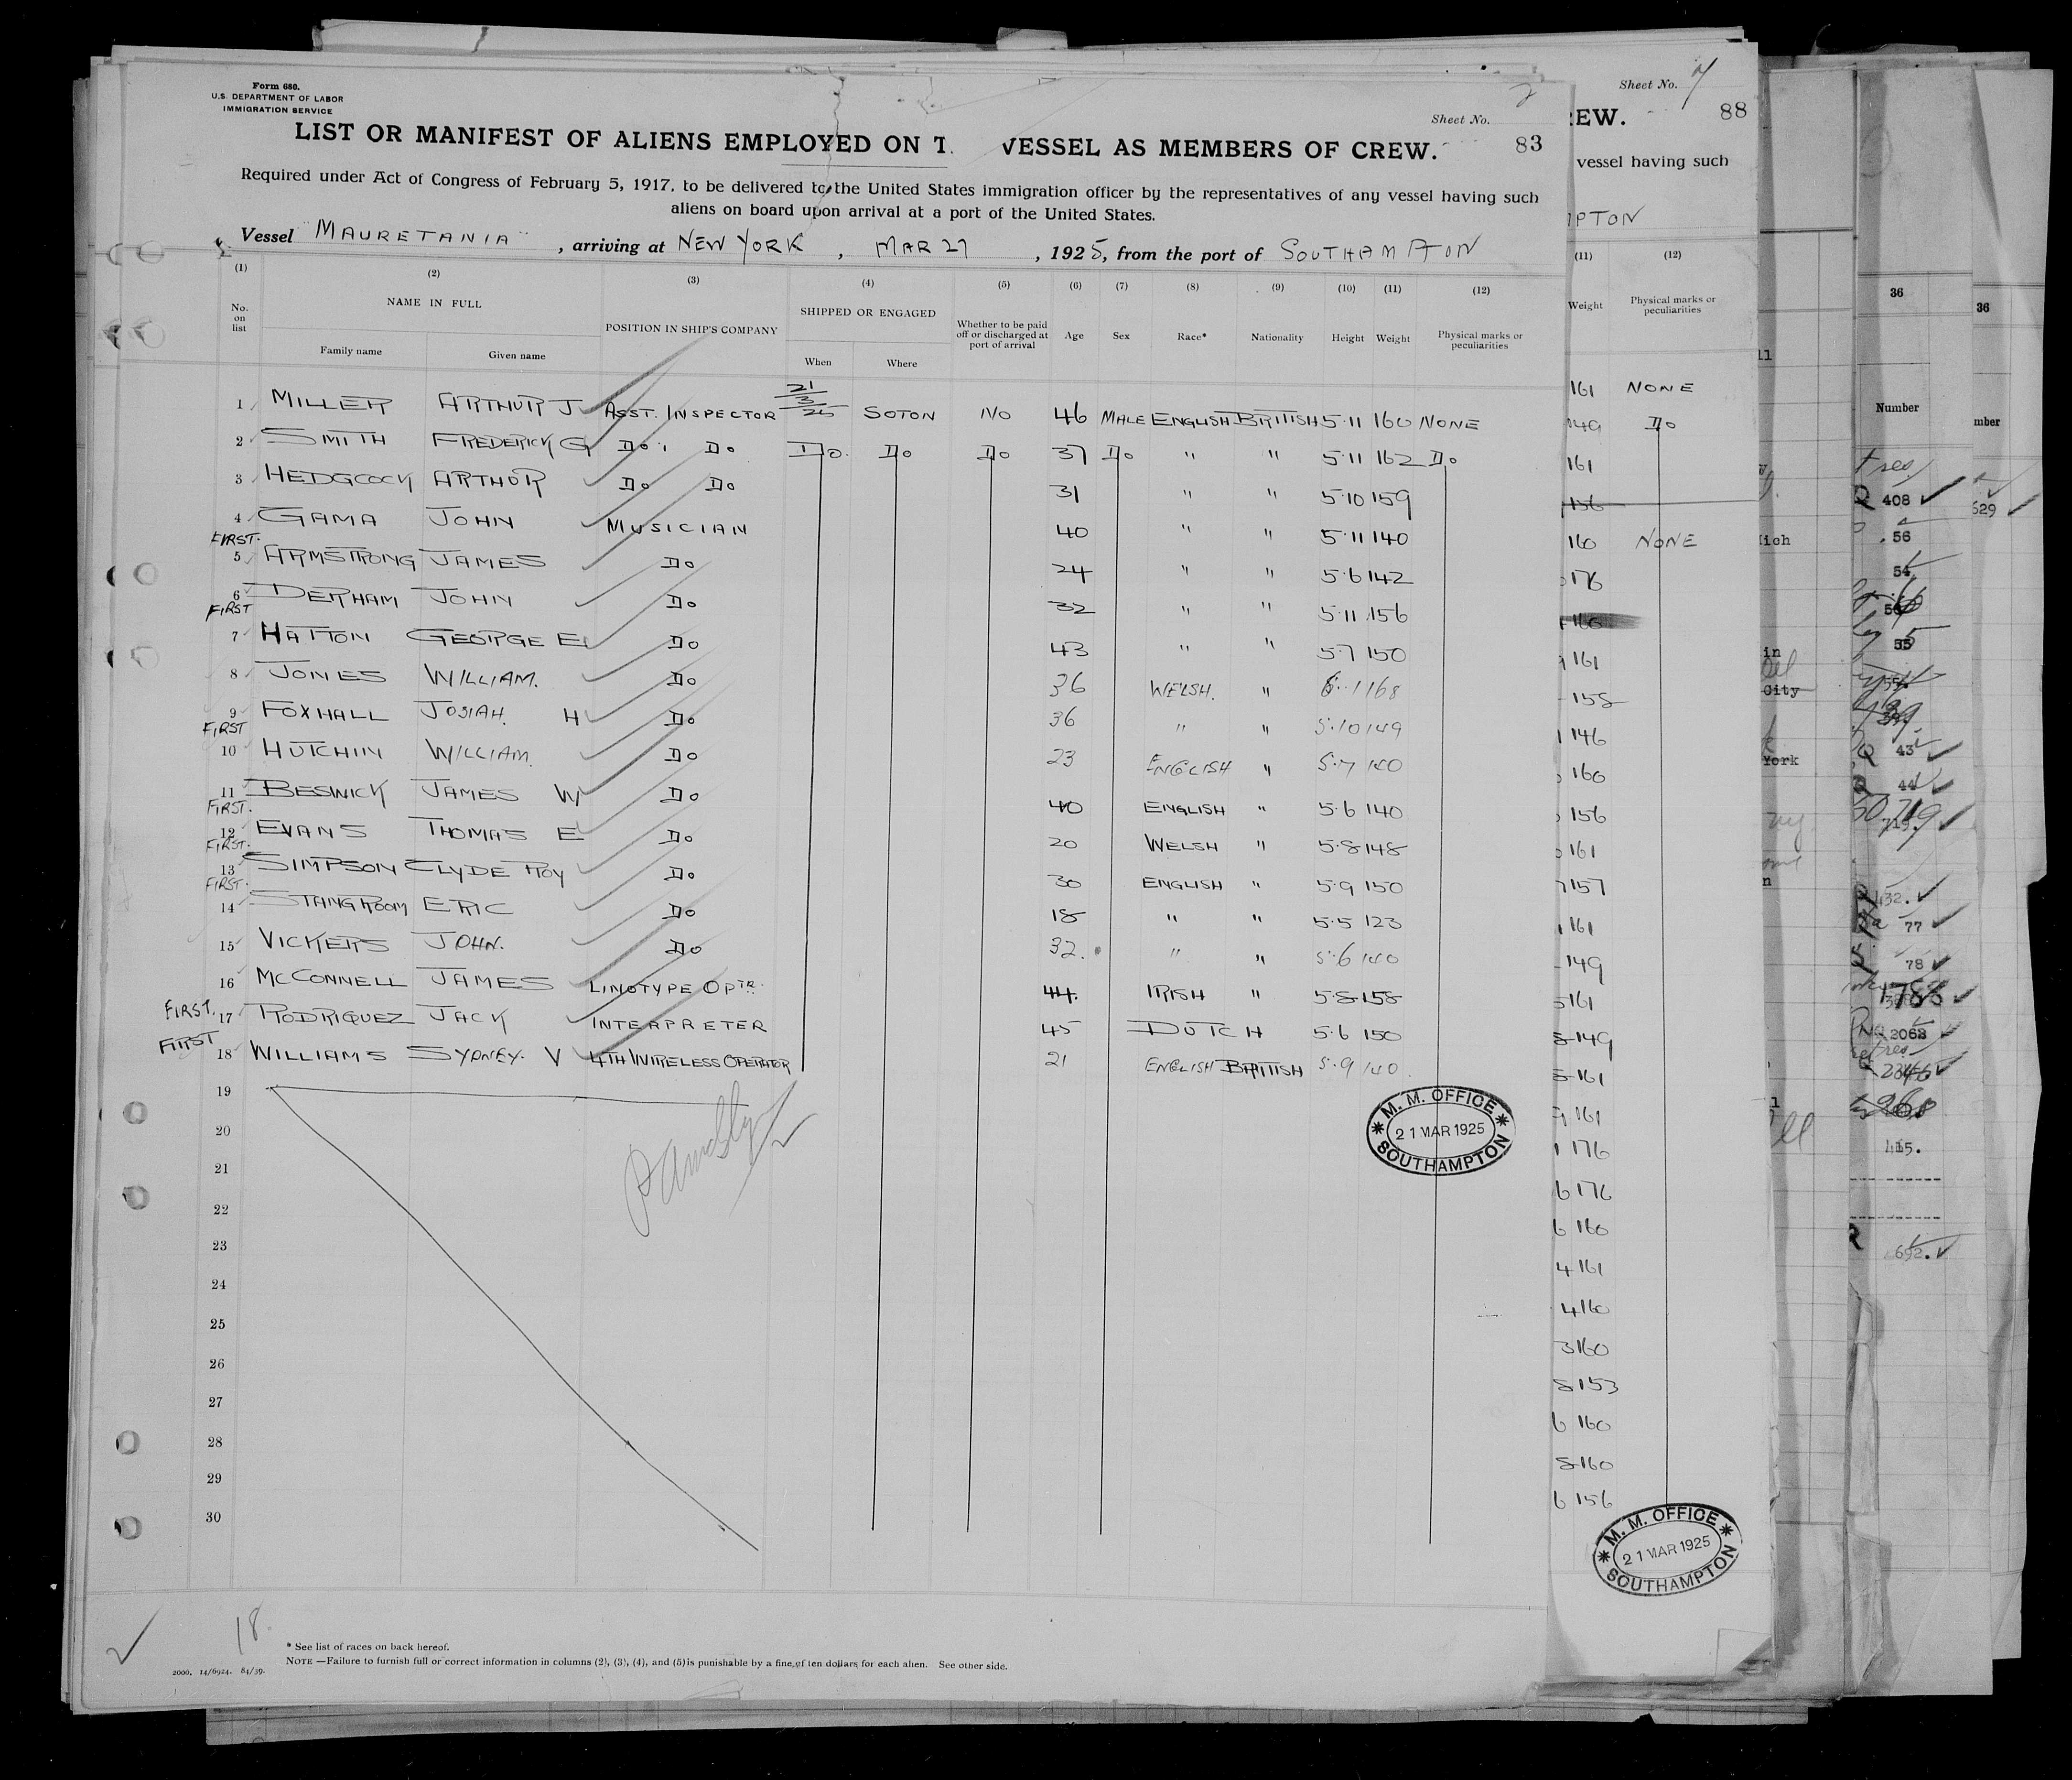 Form 680.
U.S. DEPARTMENT OF LABOR
IMMIGRATION SERVICE
Sheet No. 2
83
LIST OR MANIFEST OF ALIENS EMPLOYED ON T VESSEL AS MEMBERS OF CREW.
Required under Act of Congress of February 5, 1917, to be delivered to the United States immigration officer by the representatives of any vessel having such
aliens on board upon arrival at a port of the United States.
Vessel "MAURETANIA", arriving at NEW YORK, MAR 27, 1925, from the port of SOUTHAMPTON
(1) (2) (3) (4) (5) (6) (7) (8) (9) (10) (11) (12)
No. on list NAME IN FULL Family name Given name POSITION IN SHIP'S COMPANY SHIPPED OR ENGAGED When Where Whether to be paid off or discharged at port of arrival Age Sex Race* Nationality Height Weight Physical marks or peculiarities
1 MILLER ARTHUR J ASST. INSPECTOR 21/3/25 SOTON NO 46 MALE ENGLISH BRITISH 5.11 160 NONE
2 SMITH FREDERICK G Do. Do Do. Do Do 37 Do " " 5.11 162 Do
3 HEDGCOCK ARTHUR Do Do 31 " " 5.10 159
4 GAMA JOHN MUSICIAN 40 " " 5.11 140
FIRST.
5 ARMSTRONG JAMES Do 24 " " 5.6 142
6 DERHAM JOHN Do 32 " " 5.11 156
FIRST
7 HATTON GEORGE E Do 43 " " 5.7 150
8 JONES WILLIAM. Do 36 WELSH. " 6.1 168
9 FOXHALL JOSIAH. H Do 36 " " 5.10 149
FIRST
10 HUTCHIN WILLIAM. Do 23 ENGLISH " 5.7 140
11 BESWICK JAMES W Do 40 ENGLISH " 5.6 140
FIRST.
12 EVANS THOMAS E Do 20 WELSH " 5.8 148
FIRST.
13 SIMPSON CLYDE ROY Do 30 ENGLISH " 5.9 150
FIRST.
14 STANGROOM ERIC Do 18 " " 5.5 123
15 VICKERS JOHN. Do 32. " " 5.6 140
16 MCCONNELL JAMES LINOTYPE OPTR. 44. IRISH " 5.8 158
FIRST. 17 RODRIQUEZ JACK INTERPRETER 45 DUTCH 5.6 150
FIRST 18 WILLIAMS SYDNEY. V 4TH WIRELESS OPERATOR 21 ENGLISH BRITISH 5.9 140
19
20
21
22
23
24
25
26
27
28
29
30
M. M. OFFICE
21 MAR 1925
SOUTHAMPTON
18
* See list of races on back hereof.
NOTE —Failure to furnish full or correct information in columns (2), (3), (4), and (5) is punishable by a fine of ten dollars for each alien. See other side.
2000. 14/6924. 84/39.
Sheet No. 7
88
EW.
vessel having such
MPTON
(11) (12)
Weight Physical marks or peculiarities
161 NONE
149 Do
161
156
160 NONE
176
160
161
158
146
160
156
161
157
161
149
161
149
161
161
176
176
160
161
160
160
153
160
160
156
M. M. OFFICE
21 MAR 1925
SOUTHAMPTON
36
Number
408
56
54
55
City
43
York
44
77
78
2063
415.
692.
36
mber
629